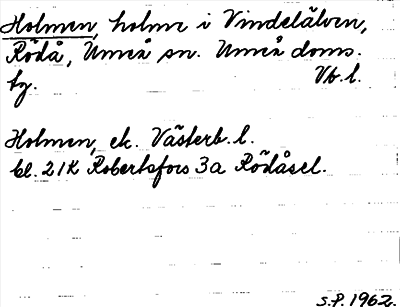 Holmen, holme i Vindelälven,
Rödå, Umeå sn. Umeå doms.
tg. Vb. l.
Holmen, ek. Västerb. l.
bl. 21K Robertsfors 3a Rödåsel.
S.P. 1962.